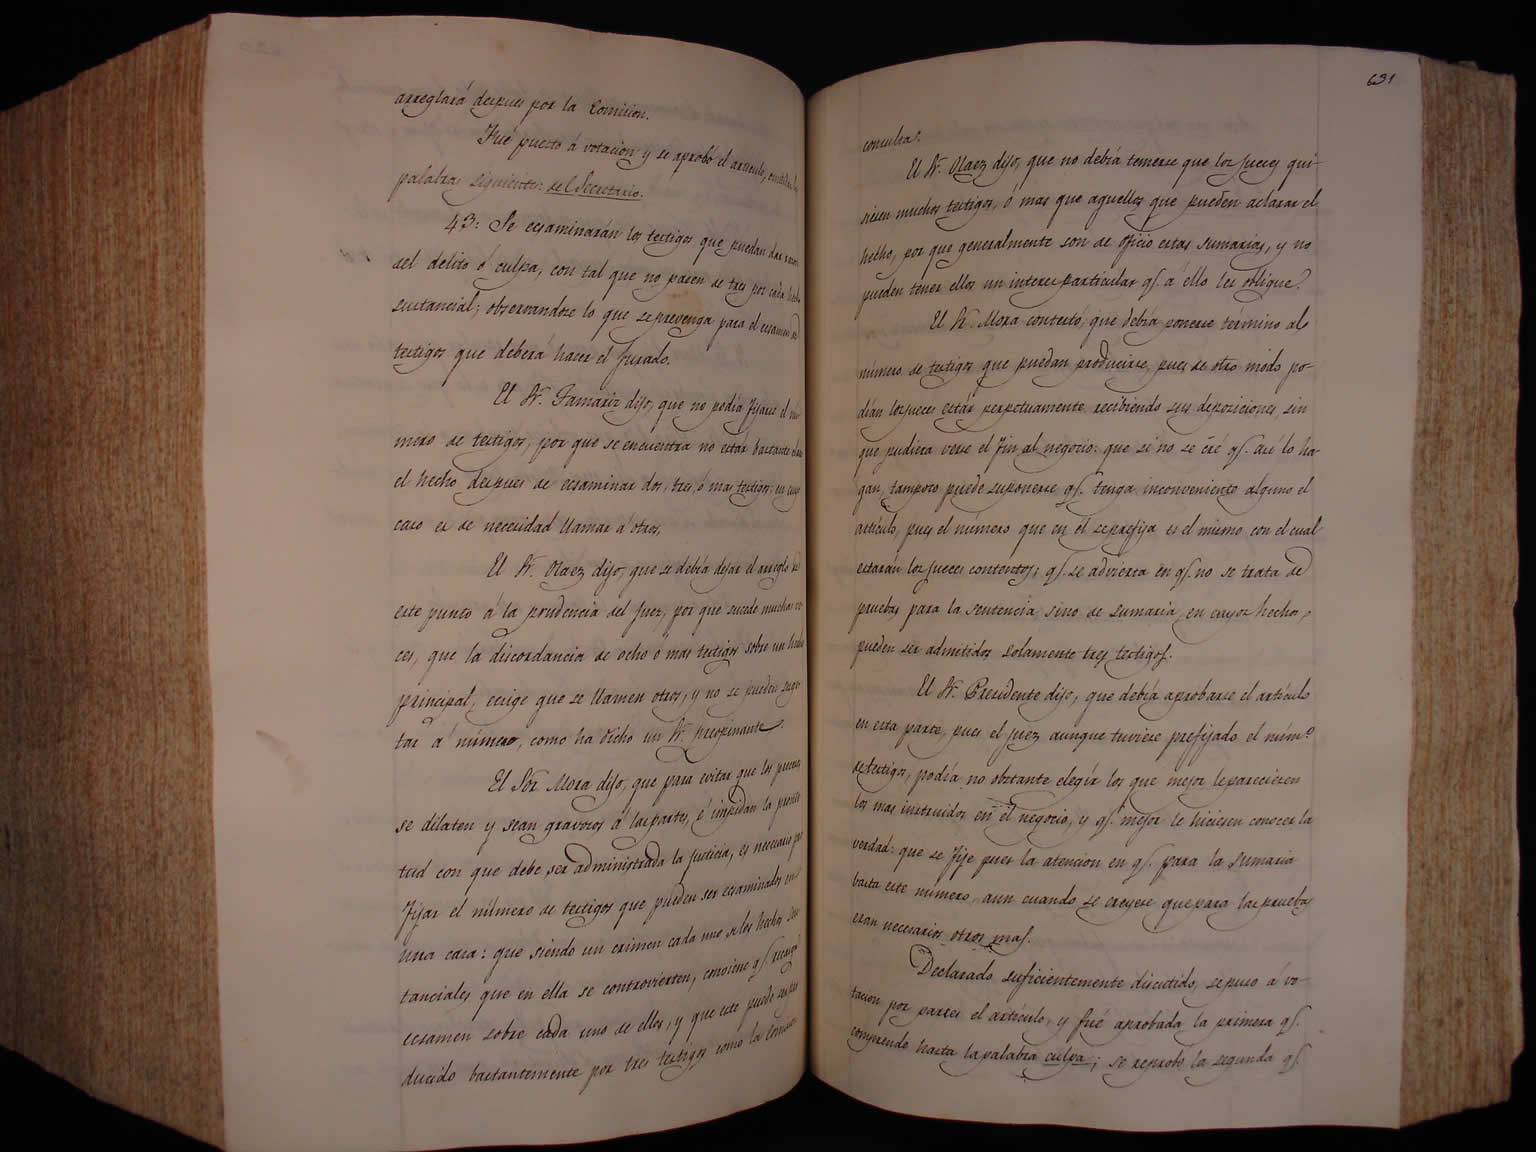 arreglará despues por la Comision.
Fué puesto á votacion y se aprobó el articulo, omitidas las
palabras siguientes: del Secretario.
43: Se ecsaminarán los testigos que puedan dar razon
del delito ó culpa, con tal que no pasen de tres por cada hecho
sustancial; observandose lo que se prevenga para el ecsamen de
testigos que deberá hacer el Jurado.
El Sr. Tamariz dijo, que no podía fijarse el nu-
mero de testigos, por que se encuentra no estár bastante claro
el hecho despues de ecsaminar dos, tres, ó mas testigos; en cuyo
caso es de necesidad llamar á otros.
El Sr. Olaez dijo, que se debía dejar el arreglo de
este punto á la prudencia del Juez, por que sucede muchas ve-
ces, que la discordancia de ocho ó mas testigos sobre un hecho
principal, ecsige que se llamen otros, y no se pueden suge-
tar á número, como ha dicho un Sr. preopinante.
El Sor. Mora dijo, que para evitar que los procesos
se dilaten y sean gravosos á las partes, é impidan la pronti-
tud con que debe ser administrada la justicia, es necesario pre-
fijar el número de testigos que pueden ser ecsaminados en
una casa: que siendo un crimen cada uno de los hechos sus-
tanciales que en ella se controvierten, conviene qe. recaiga
ecsamen sobre cada uno de ellos, y que este puede ser pro-
ducido bastantemente por tres testigos como la Comision
631
consulta.
El Sr. Olaez dijo, que no debía temerse que los Jueces qui-
siesen muchos testigos, ó mas que aquellos que pueden aclarar el
hecho, por que generalmente son de oficio estas sumarias, y no
pueden tener ellos un interes particular qe. á ello les obligue.
El Sr. Mora contestó, que debía ponerse término al
número de testigos que puedan producirse, pues de otro modo po-
dían los jueces estár perpetuamente recibiendo sus deposiciones, sin
que pudiera verse el fin al negocio: que si no se cré qe. asi lo ha-
gan, tampoco puede suponerse qe. tenga inconveniente alguno el
articulo, pues el número que en él se prefija es el mismo con el cual
estarán los Jueces contentos; qe. se advierta en qe. no se trata de
pruebas para la sentencia, sino de sumaria, en cuyos hechos,
pueden ser admitidos solamente tres testigos.
El Sr. Presidente dijo, que debía aprobarse el artículo
en esta parte, pues el juez aunque tuviese prefijado el núm.o
de testigos, podía no obstante elegir los que mejor le pareciesen
los mas instruidos en el negocio, y qe. mejor le hiciesen conocer la
verdad: que se fije pues la atencion en qe. para la sumaria
basta este número, aun cuando se creyese que para las pruebas
eran necesarios otros mas.
Declarado suficientemente discutido, se puso á vo-
tacion por partes el artículo, y fué aprobada la primera qe.
comprende hasta la palabra culpa; se reprobó la segunda qe.